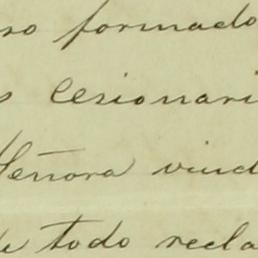 so formado
s cesionari
Señora viud
de todo recla